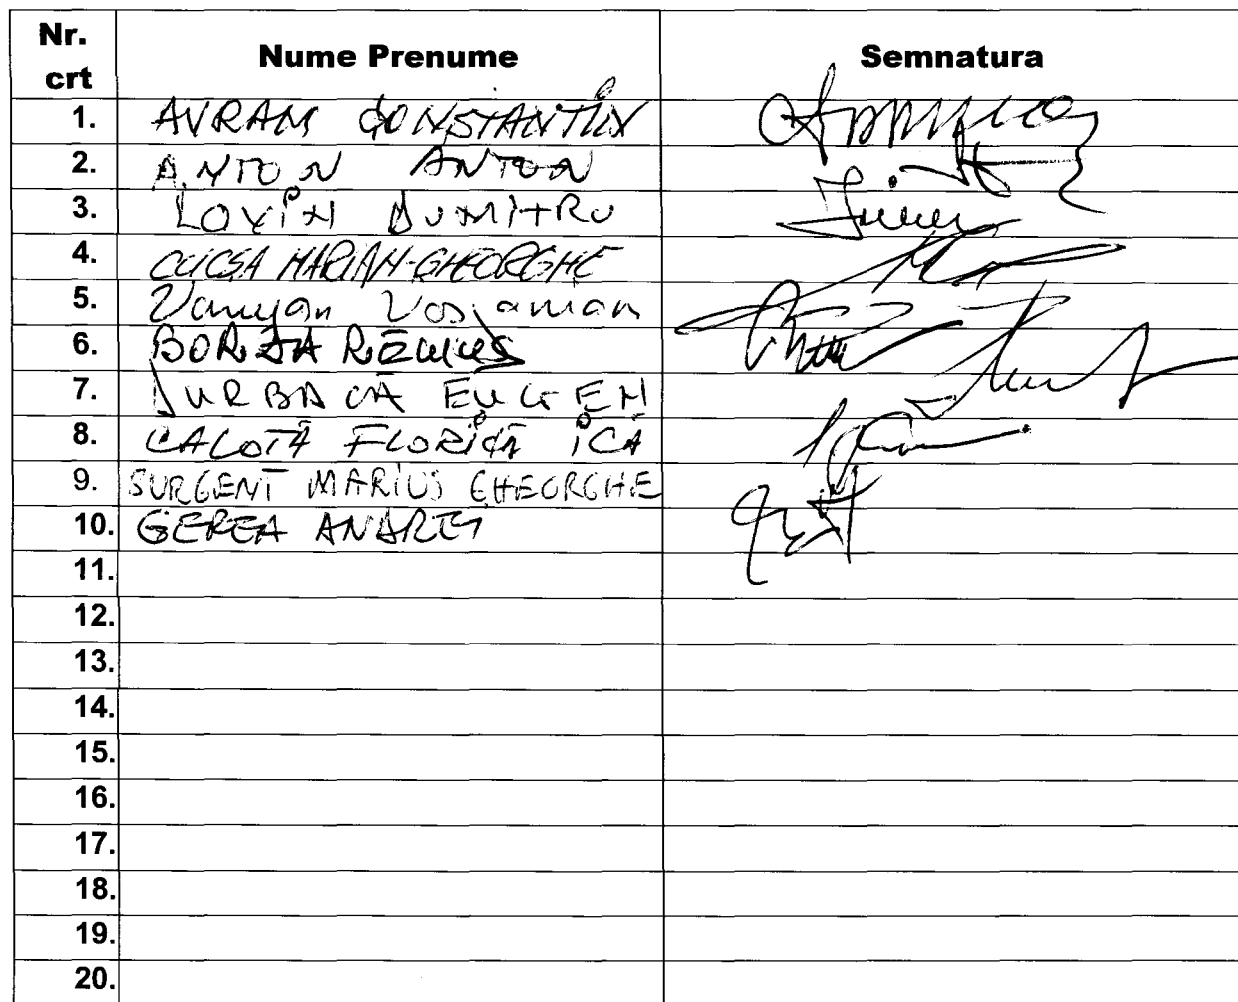 Nr. crt Nume Prenume Semnatura
1. AVRAM CONSTANTIN
2. ANTON ANTON
3. LOVIN DUMITRU
4. CUCSA MARIAN-GHEORGHE
5. Varujan Vosganian
6. BORZA REMUS
7. DURBACĂ EUGEN
8. CALOTĂ FLORICĂ ICĂ
9. SURGENT MARIUS GHEORGHE
10. GEREA ANDREI
11.
12.
13.
14.
15.
16.
17.
18.
19.
20.